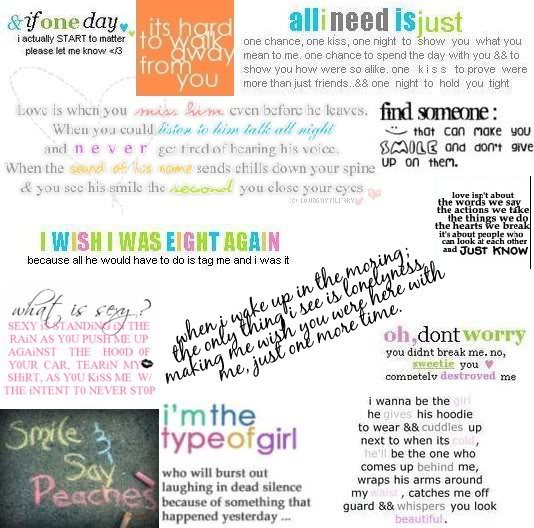 & if one day
i actually START to matter
please let me know </3
its hard
to walk
away
from
you
all i need is just
one chance, one kiss, one night to show you what you
mean to me. one chance to spend the day with you && to
show you how were so alike. one kiss to prove were
more than just friends. && one night to hold you tight
Love is when you miss him even before he leaves.
When you could listen to him talk all night
and never get tired of hearing his voice.
When the sound of his name sends chills down your spine
& you see his smile the second you close your eyes
(C) LOVINGMYMILITARY
find someone:
that can make you
SMILE and don't give
up on them.
love isn't about
the words we say
the actions we take
the things we do
the hearts we break
it's about people who
can look at each other
and JUST KNOW
I WISH I WAS EIGHT AGAIN
because all he would have to do is tag me and i was it
when i wake up in the moring;
the only thing i see is lonelyness,
making me wish you were here with
me, just one more time.
what is sexy?
SEXY iS STANDiNG iN THE
RAiN AS Y0U PUSH ME UP
AGAiNST THE H00D 0F
Y0UR CAR. TEARiN MY
SHiRT, AS Y0U KiSS ME W/
THE iNTENT T0 NEVER ST0P
oh, dont worry
you didnt break me. no,
sweetie you ♥
completely destroyed me
Smile &
Say
Peaches
i'm the
type of girl
who will burst out
laughing in dead silence
because of something that
happened yesterday ...
i wanna be the girl
he gives his hoodie
to wear && cuddles up
next to when its cold,
he'll be the one who
comes up behind me,
wraps his arms around
my waist , catches me off
guard && whispers you look
beautiful.